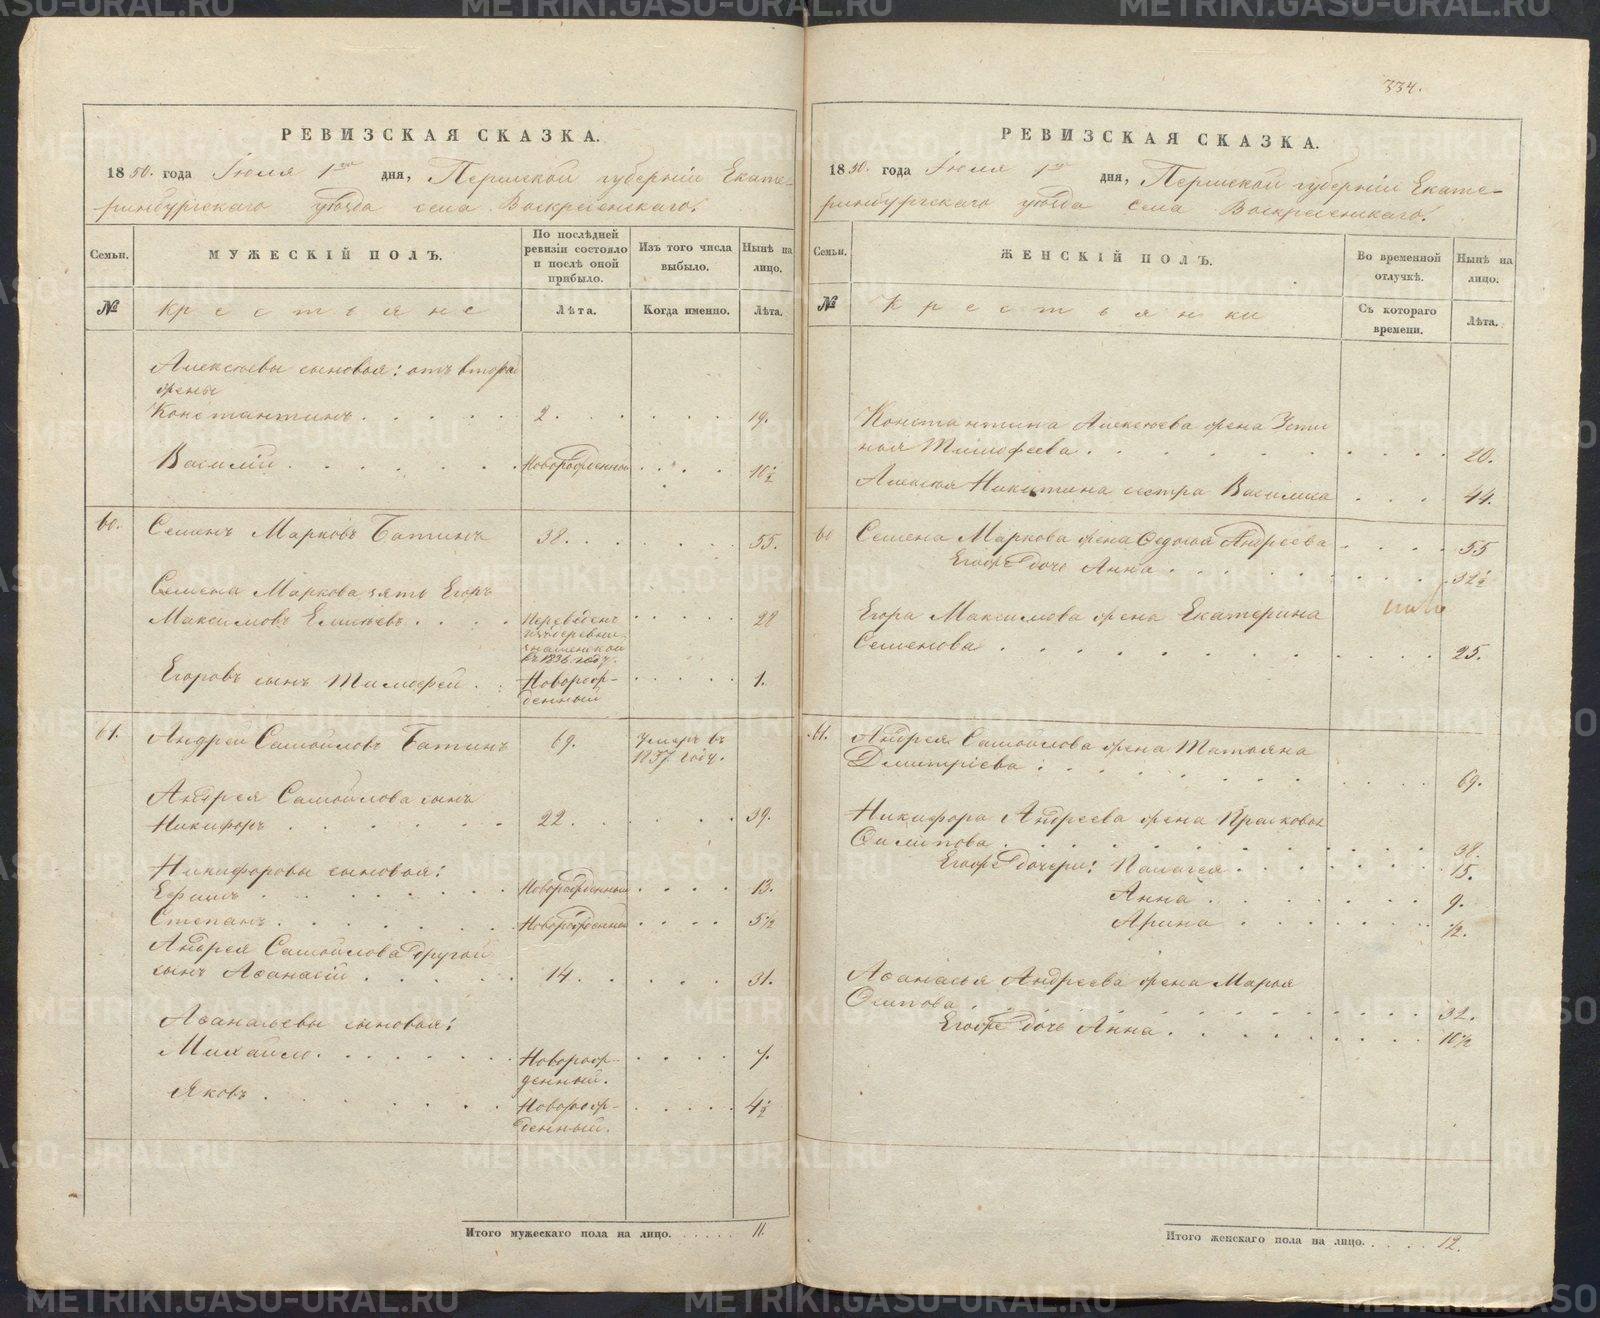 334.
РЕВИЗСКАЯ СКАЗКА.
1850. года Іюля 1го дня, Пермской губерніи Екате-
ринбургскаго уѣзда села Воскресенскаго.
Семьи.
МУЖЕСКІЙ ПОЛЪ.
По послѣдней ревизіи состояло и послѣ оной прибыло.
Изъ того числа выбыло.
Нынѣ на лицо.
№
Крестьяне
Лѣта.
Когда именно.
Лѣта.
Алексѣевы сыновья: отъ второй
жены
Константинъ . . . . . 2. . . . . . 19.
Василій . . . . . . Новорожденный . . . . 10½
60. Семенъ Марковъ Батинъ 38. . . . . . 55.
Семена Маркова зять Егоръ
Максимовъ . . . . Переведенъ . . . . . 28
изъ деревни
въ 1836 году.
Егоровъ сынъ Тимофей . . Новорож- . . . . . 1.
денный
61. Андрей Самойловъ Батинъ 69. Умеръ въ
1837 году.
Андрея Самойлова сынъ
Никифоръ . . . . . . 22. . . . . . 39.
Никифоровы сыновья:
Ефимъ . . . . . . Новорожденный . . . . 13.
Степанъ . . . . . . Новорожденный . . . . 5½
Андрея Самойлова другой
сынъ Афанасій . . . . 14. . . . . . 31.
Афанасьевы сыновья:
Михайло . . . . . . Новорож- . . . . 7.
денный.
Яковъ . . . . . . Новорож- . . . . . 4½
денный.
Итого мужескаго пола на лицо. . . . . . 11.
РЕВИЗСКАЯ СКАЗКА.
1850. года Іюля 1го дня, Пермской губерніи Екате-
ринбургскаго уѣзда села Воскресенскаго.
Семьи.
ЖЕНСКІЙ ПОЛЪ.
Во временной отлучкѣ.
Нынѣ на лицо.
№
Крестьянки
Съ котораго времени.
Лѣта.
Константина Алексѣева жена Усти
нья Тимофеева . . . . . . . . . 20.
Никитина сестра Василиса . . . . 44.
60 Семена Маркова жена Федосья Андреева . . . . 55
Егожъ дочь Анна . . . . . . . . . 32½
Егора Максимова жена Екатерина
Семенова . . . . . . . . . . 25.
61. Андрея Самойлова жена Татьяна
Дмитріева . . . . . . . . . . 69.
Никифора Андреева жена Прасковья
Филипова . . . . . . . . . . 38.
Егожъ дочери: Палагея . . . . . . 15.
Анна . . . . . . . 9.
Арина . . . . . . . ½.
Афанасья Андреева жена Марья
Осипова . . . . . . . . . . 32.
Егожъ дочь Анна . . . . . . . . 10½
Итого женскаго пола на лицо. . . . . 12.
METRIKI.GASO-URAL.RU